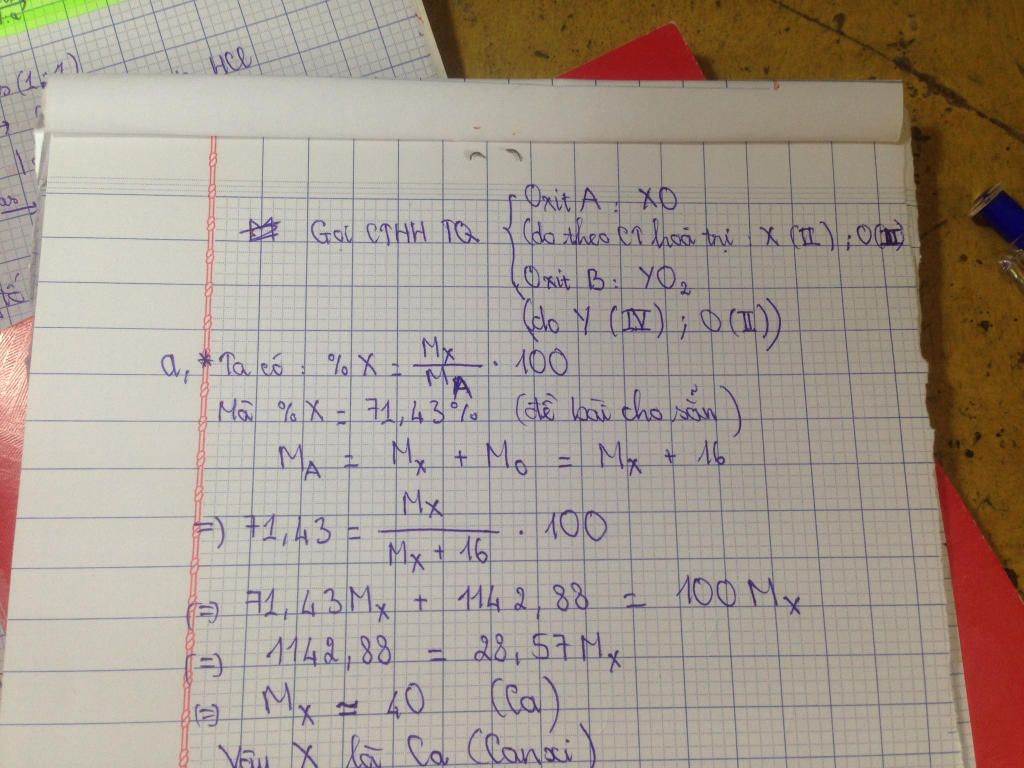 (1:1)
HCl
Oxit A : XO
Gọi CTHH TQ (do theo CT hoá trị X (II) ; O(II)
Oxit B : YO₂
(do Y (IV) ; O (II))
a, * Ta có : % X = Mx/MA . 100
Mà % X = 71,43 % (đề bài cho sẵn)
MA = Mx + MO = Mx + 16
=) 71,43 = Mx/(Mx + 16) . 100
(=) 71,43Mx + 1142,88 = 100Mx
(=) 1142,88 = 28,57Mx
(=) Mx ≈ 40 (Ca)
Vậy X là Ca (Canxi)